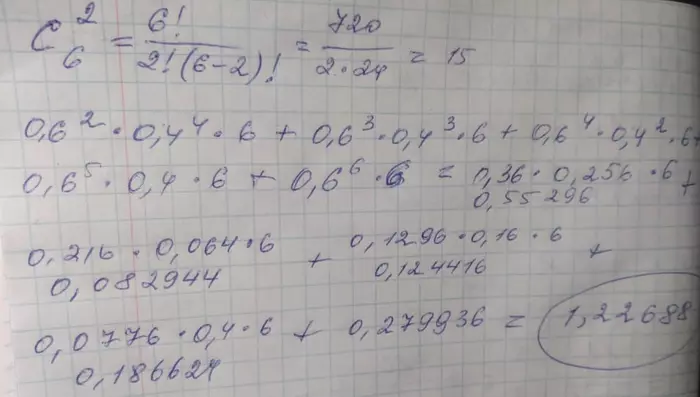 C₆² = 6! / 2!(6-2)! = 720 / 2·24 = 15
0,6² · 0,4⁴ · 6 + 0,6³ · 0,4³ · 6 + 0,6⁴ · 0,4² · 6+
0,6⁵ · 0,4 · 6 + 0,6⁶ · 6 = 0,36 · 0,256 · 6 +
0,55296
0,216 · 0,064 · 6 + 0,1296 · 0,16 · 6 +
0,082944 0,124416
0,0776 · 0,4 · 6 + 0,279936 = 1,22688
0,186624